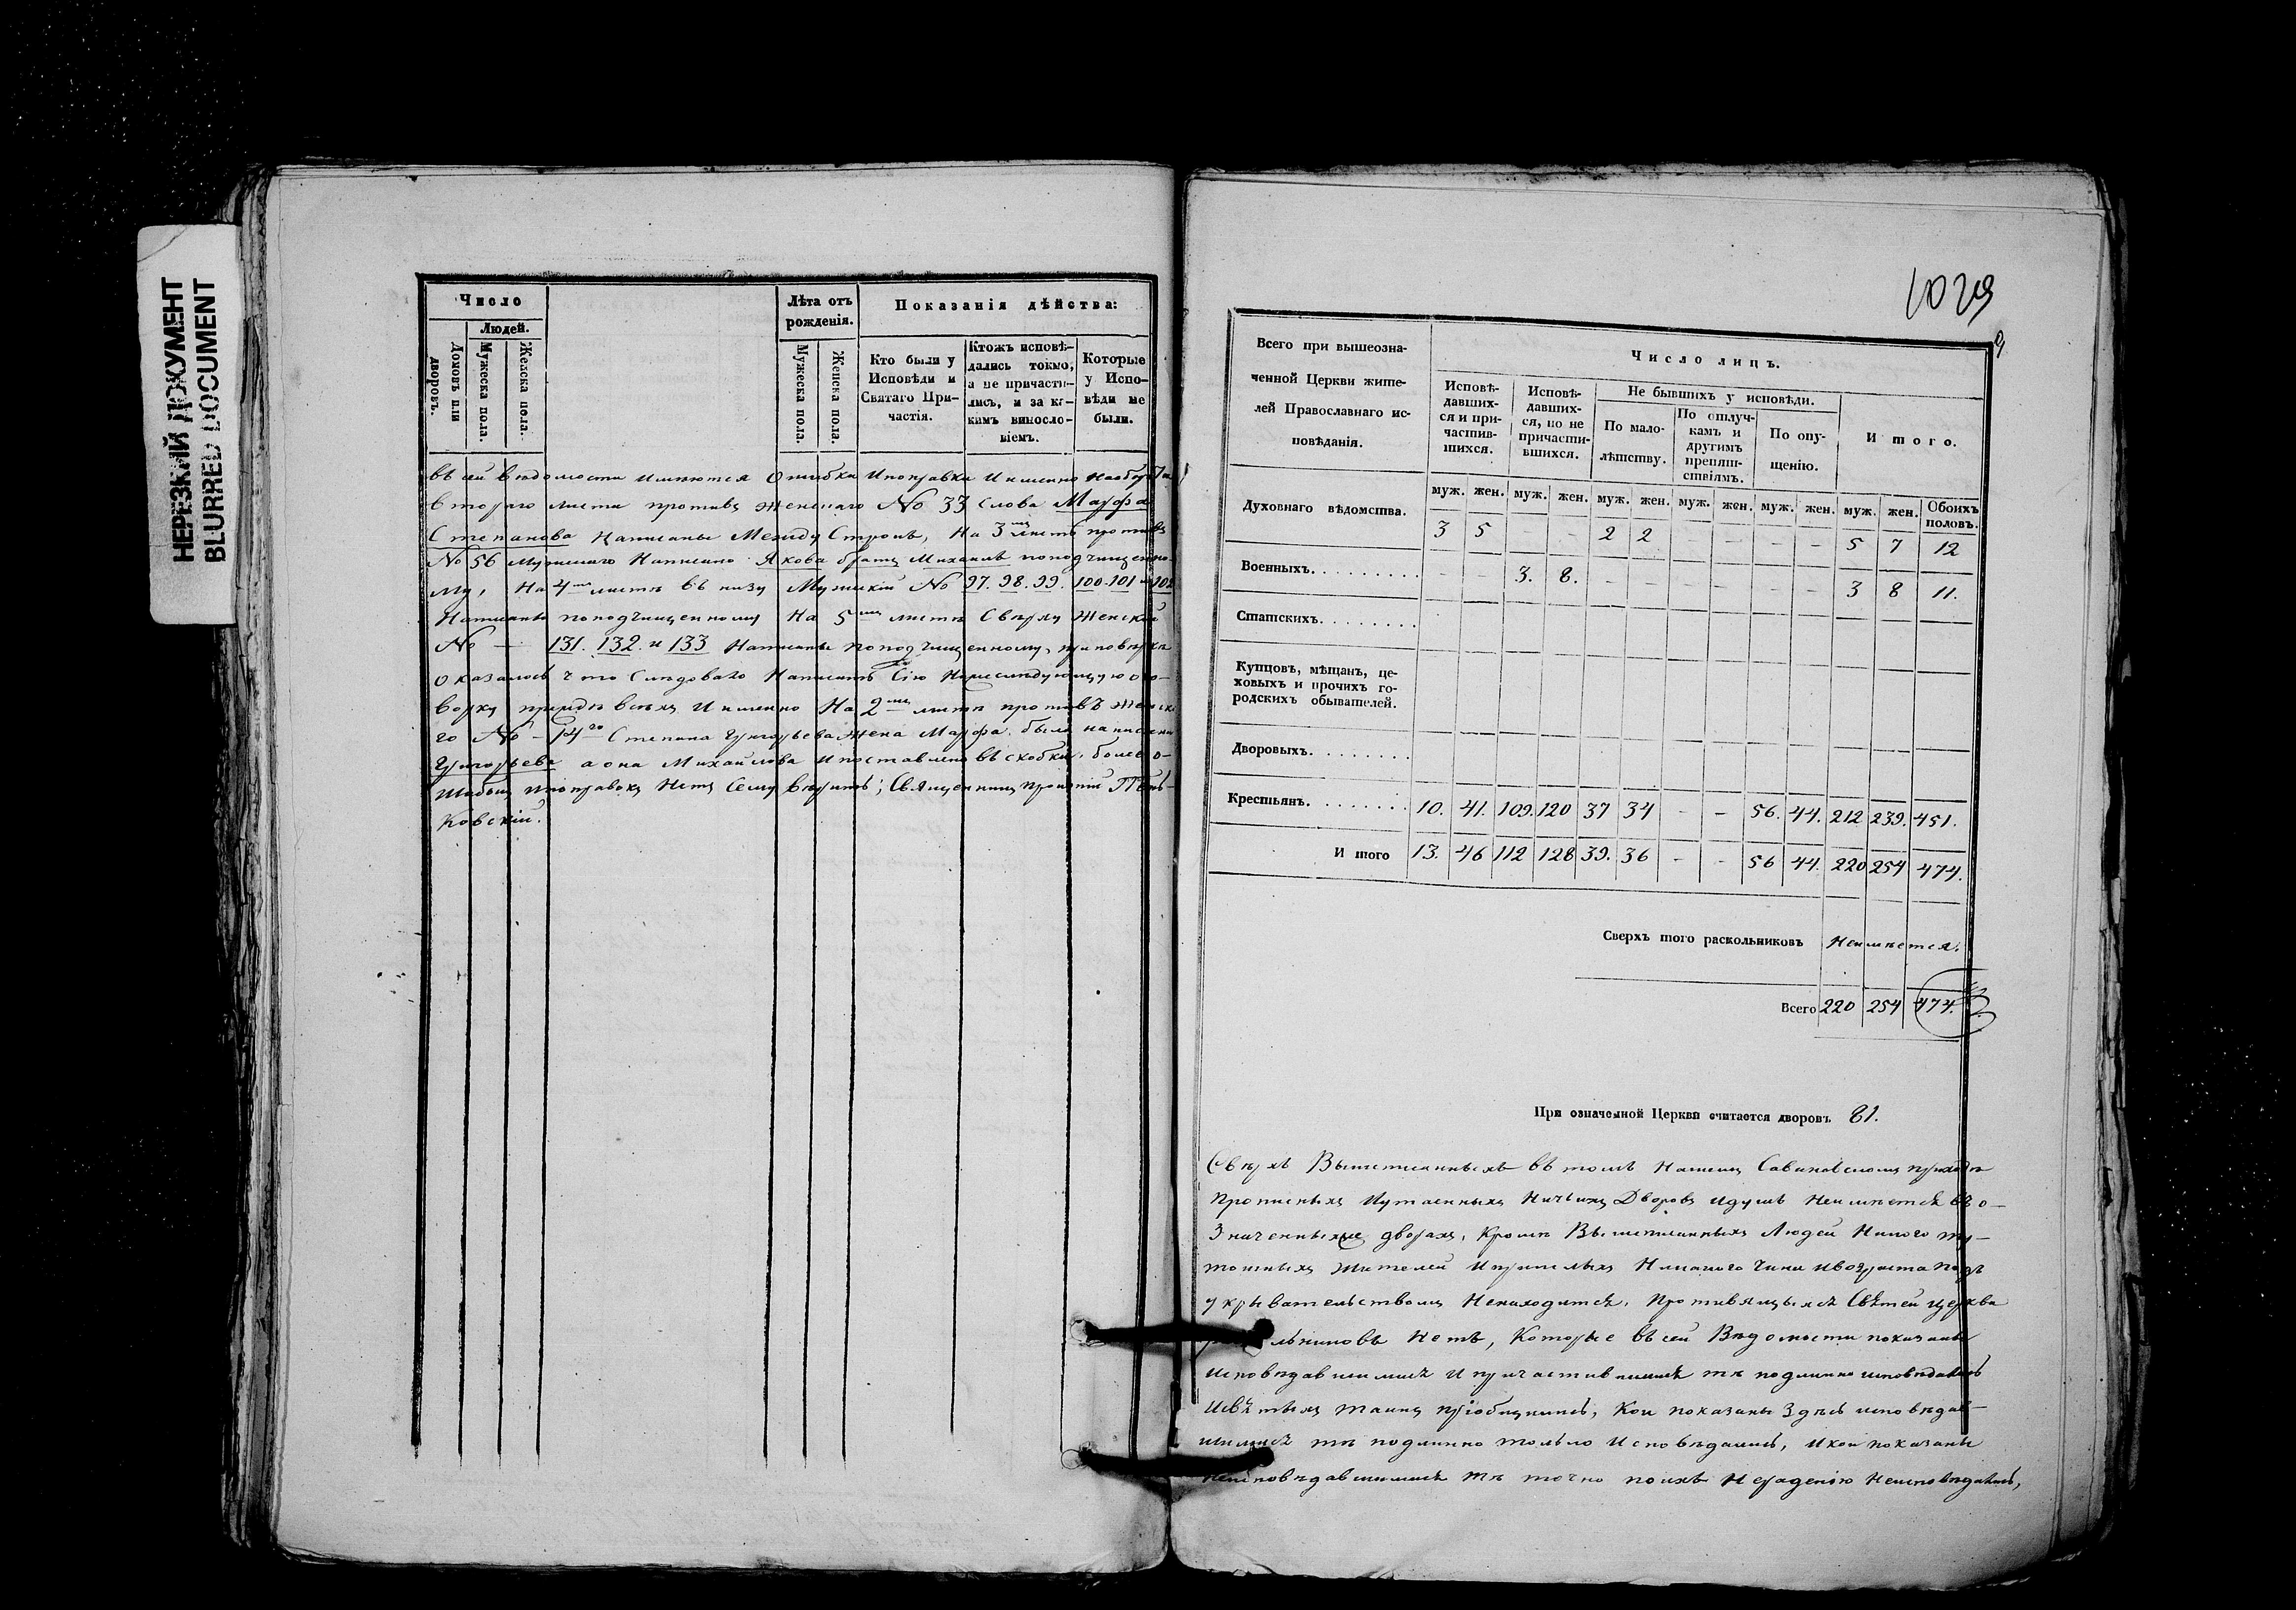 НЕРЕЗКИЙ ДОКУМЕНТ
BLURRED DOCUMENT
Число
Людей.
Домовъ или дворовъ.
Мужеска пола.
Женска пола.
Лѣта отъ рожденія.
Мужеска пола.
Женска пола.
Показанія дѣйства:
Кто были у Исповѣди и Святаго Причастія.
Ктожъ исповѣ-
дались токмо,
а не причасти-
лись, и за ка-
кимъ виносло-
віемъ.
Которые
у Испо-
вѣди не
были.
въ сей вѣдомости имѣются ошибки и поправки и именно на обор
втораго листа противъ женскаго № 33 слова Марфа
Степанова написаны между строкъ, на 3мъ листѣ противъ
№ 56 мужскаго написано Якова братъ Михаилъ поподчищенно-
му, на 4мъ листѣ въ низу мужскіи № 97. 98. 99. 100. 101 и 102
написаны поподчищенному на 5мъ листѣ сверху женскіи
№ — 131. 132. и 133 написаны поподчищенному, при повѣркѣ
оказалось что слѣдовало написать сію нижеслѣдующую ого-
ворку прежде всѣхъ и именно на 2мъ листѣ противъ женска
го № — 14го Степана Григорьева жена Марфа была написана
Григорьева а она Михайлова и поставлено въ скобки. болѣе о-
шибокъ и поправокъ нетъ сему вѣрить; Священникъ
ковскій.
1029
9
Всего при вышеозна-
ченной Церкви жите-
лей Православнаго ис-
повѣданія.
Число лицъ.
Исповѣ-
давших-
ся и при-
частив-
шихся.
Исповѣ-
давших-
ся, но не
причасти-
вшихся.
Не бывшихъ у исповѣди.
По мало-
лѣтству.
По отлуч-
камъ и
другимъ
препят-
ствіямъ.
По опу-
щенію.
Итого.
муж. жен. муж. жен. муж. жен. муж. жен. муж. жен. муж. жен. Обоихъ половъ.
Духовнаго вѣдомства. 3 5 - 2 2 - - - - 5 7 12
Военныхъ. - - 3. 8. - - - - 3 8 11.
Статскихъ.
Купцовъ, мѣщанъ, це-
ховыхъ и прочихъ го-
родскихъ обывателей.
Дворовыхъ.
Крестьянъ. 10. 41. 109. 120 37 34 - - 56. 44. 212 239. 451.
И того 13. 46 112 128 39. 36 - - 56 44. 220 254 474.
Сверхъ того раскольниковъ Неимѣется.
Всего 220 254 474.
При означенной Церкви считается дворовъ 81.
Сверхъ вышеписанныхъ въ томъ нашемъ Савиновскомъ приходѣ
прописныхъ и утаенныхъ ничьихъ дворовъ и душъ неимѣется въ о-
значенныхъ дворахъ, кромѣ вышеписанныхъ людей никого ту-
тошныхъ жителей и пришлыхъ никакого чина и возраста подъ
укрывательствомъ ненаходится, противящихся святей церкви
нетъ, которые въ сей вѣдомости показаны
исповѣдавшимися и причастившимися тѣ подлинно исповѣдались
и святыхъ таинъ пріобщились, кои показаны здѣсь исповѣдав-
шимися тѣ подлинно только исповѣдались, и кои показаны
неисповѣдавшимися тѣ точно по ихъ нераденію неисповѣдались,